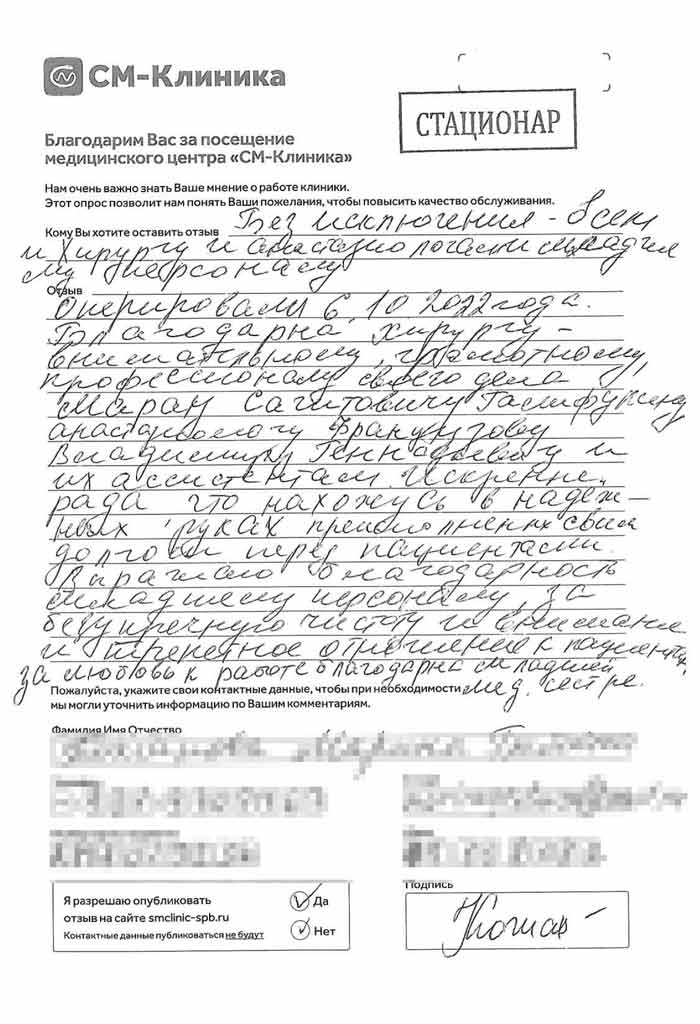 СМ-Клиника
СТАЦИОНАР
Благодарим Вас за посещение
медицинского центра «СМ-Клиника»
Нам очень важно знать Ваше мнение о работе клиники.
Этот опрос позволит нам понять Ваши пожелания, чтобы повысить качество обслуживания.
Кому Вы хотите оставить отзыв Без исключения - всем
и хирургу и анастазиологам и младше
му персоналу
Отзыв
Оперировали 6.10.2022 года.
Благодарна хирургу -
внимательному, грамотному,
профессионалу своего дела
Марат Сагитовичу
анастезиологу Французову
Владимиру Геннадьевичу и
их ассистентам. Искренне
рада что нахожусь в надеж-
ных руках преисполненных своим
долгом перед пациентами.
Выражаю благодарность
младшему персоналу, за
безупречную чистоту и внимание
и трепетное отношение к пациенту,
за любовь к работе благодарна младшей
мед. сестре.
Пожалуйста, укажите свои контактные данные, чтобы при необходимости
мы могли уточнить информацию по Вашим комментариям.
Фамилия Имя Отчество
Подпись
Я разрешаю опубликовать
отзыв на сайте smclinic-spb.ru
Контактные данные публиковаться не будут
Да
Нет